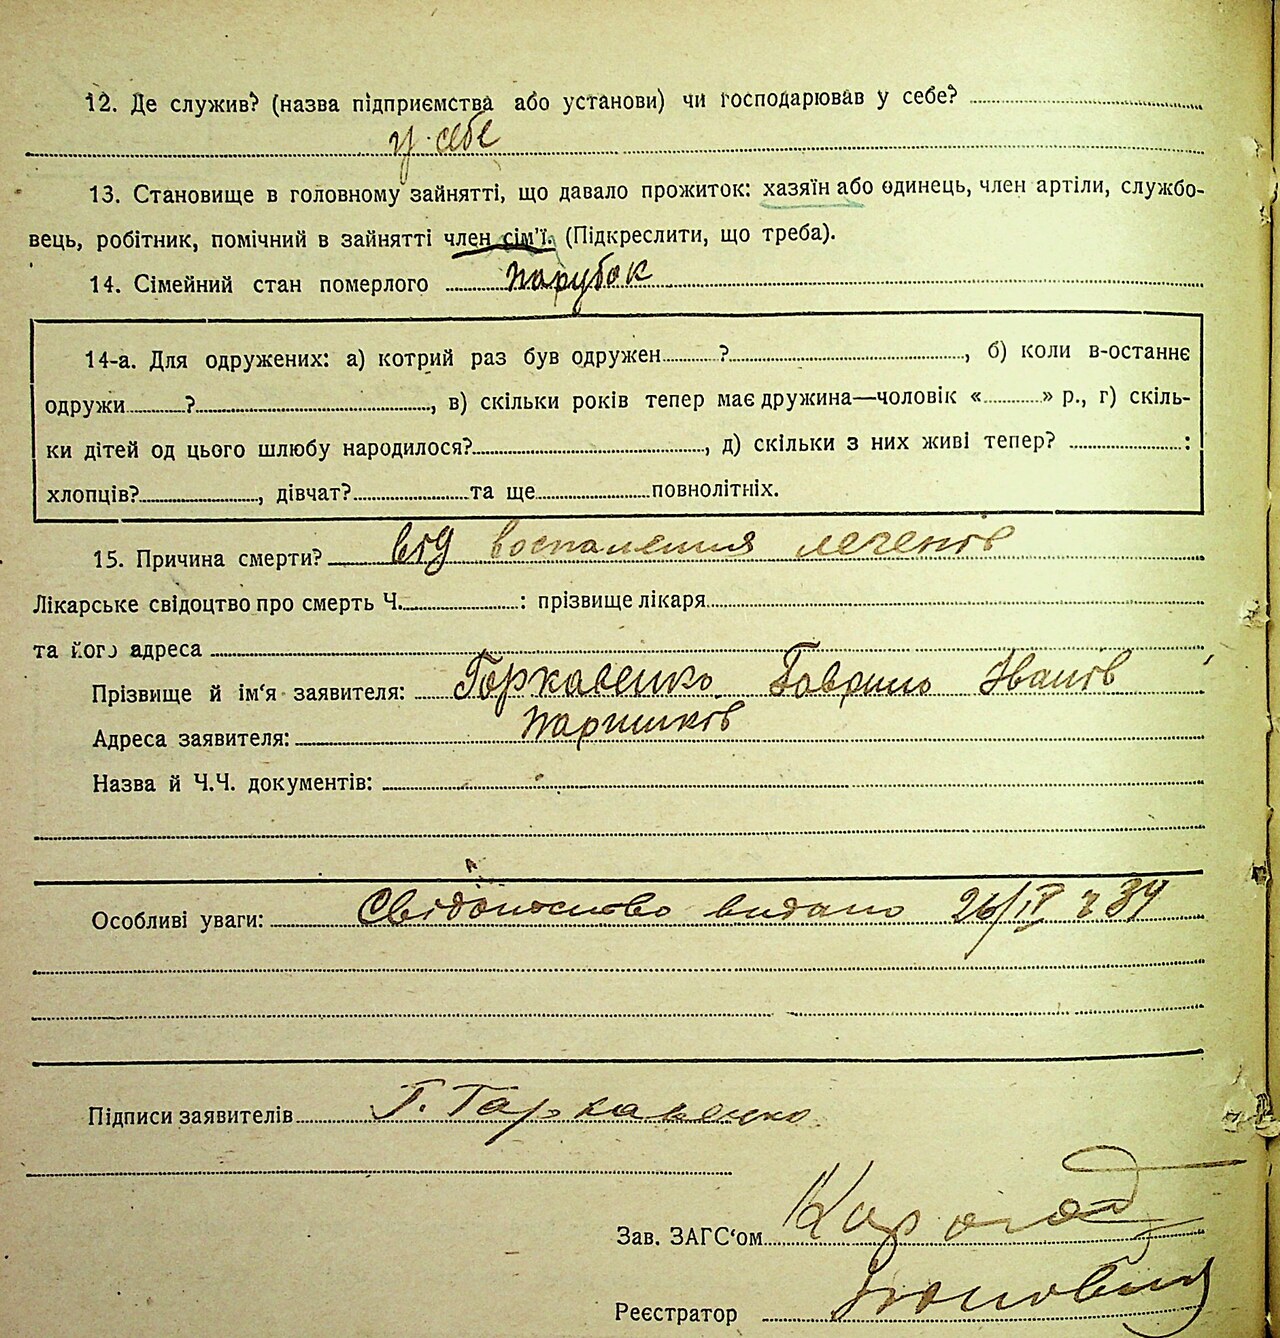 12. Де служив? (назва підприємства або установи) чи господарював у себе?
у себе
13. Становище в головному зайнятті, що давало прожиток: хазяїн або одинець, член артіли, службо-
вець, робітник, помічний в зайнятті член сім'ї. (Підкреслити, що треба).
14. Сімейний стан померлого парубок
14-а. Для одружених: а) котрий раз був одружен ?, б) коли в-останнє
одружи ?, в) скільки років тепер має дружина—чоловік « » р., г) скіль-
ки дітей од цього шлюбу народилося?, д) скільки з них живі тепер? :
хлопців?, дівчат? та ще повнолітніх.
15. Причина смерти? від воспаления легенів
Лікарське свідоцтво про смерть Ч. : прізвище лікаря
та його адреса
Прізвище й ім'я заявителя: Гаркавенко Гаврило Іванів
Адреса заявителя: Паришків
Назва й Ч.Ч. документів:
Особливі уваги: видано 26/IV 34
Підписи заявителів Г. Гаркавенко
Зав. ЗАГС'ом
Реєстратор